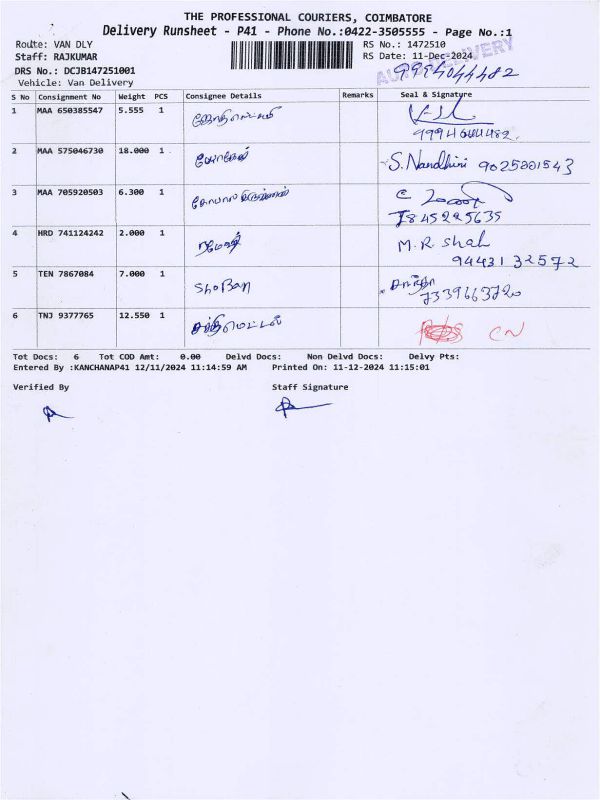 THE PROFESSIONAL COURIERS, COIMBATORE
Delivery Runsheet - P41 - Phone No.:0422-3505555 - Page No.:1
Route: VAN DLY RS No.: 1472510
Staff: RAJKUMAR RS Date: 11-Dec-2024
DRS No.: DCJB147251001 9994044482
Vehicle: Van Delivery
S No Consignment No Weight PCS Consignee Details Remarks Seal & Signature
1 MAA 650385547 5.555 1
9994044482
2 MAA 575046730 18.000 1 S. Nandhini 9025801543
3 MAA 705920503 6.300 1
7845225635
4 HRD 741124242 2.000 1 ரமேஷ் M.R Shah
9443132572
5 TEN 7867084 7.000 1 ShoBan
7339663720
6 TNJ 9377765 12.550 1 சக்தி மெட்டல் CN
Tot Docs: 6 Tot COD Amt: 0.00 Delvd Docs: Non Delvd Docs: Delvy Pts:
Entered By :KANCHANAP41 12/11/2024 11:14:59 AM Printed On: 11-12-2024 11:15:01
Verified By Staff Signature